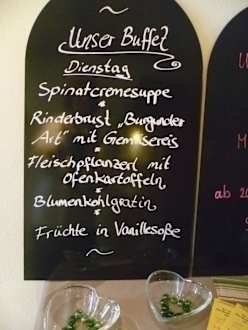 Unser Buffet
Dienstag
Spinatcremesuppe
Rinderbrust „Burgunder
Art" mit Gemüsereis
Fleischpflanzerl mit
Ofenkartoffeln
Blumenkohlgratin
Früchte in Vanillesoße
U
M
ab 20